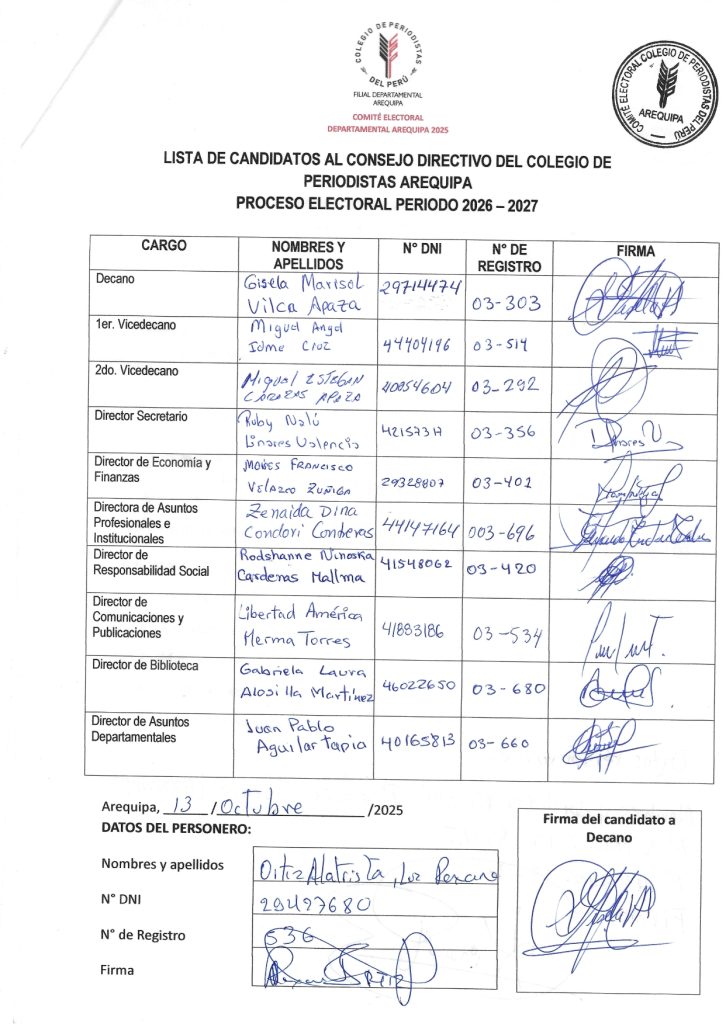 COLEGIO DE PERIODISTAS
DEL PERÚ
FILIAL DEPARTAMENTAL
AREQUIPA
COMITÉ ELECTORAL
DEPARTAMENTAL AREQUIPA 2025
COMITÉ ELECTORAL COLEGIO DE PERIODISTAS DEL PERÚ
AREQUIPA
LISTA DE CANDIDATOS AL CONSEJO DIRECTIVO DEL COLEGIO DE
PERIODISTAS AREQUIPA
PROCESO ELECTORAL PERIODO 2026 – 2027
CARGO NOMBRES Y N° DNI N° DE FIRMA
APELLIDOS REGISTRO
Decano Gisela Marisol 29714474
Vilca Apaza 03-303
1er. Vicedecano Miguel Angel
Idme Cruz 44404196 03-514
2do. Vicedecano Miguel ESTEBAN 40054604 03-292
CÁRDENAS APAZA
Director Secretario Ruby Nalú
Linares Valencia 03-356
Director de Economía y MOISES FRANCISCO
Finanzas VELAZCO ZUÑIGA 29328807 03-402
Directora de Asuntos Zenaida Dina
Profesionales e Condori Conderas 44147164 003-696
Institucionales
Director de Rodshanne Ninoska 41548062 03-420
Responsabilidad Social Cardenas Mallma
Director de Libertad América
Comunicaciones y 41883186 03-534
Publicaciones Merma Torres
Director de Biblioteca Gabriela Laura
Alosilla Martínez 46022650 03-680
Director de Asuntos Juan Pablo
Departamentales Aguilar Tapia 40165813 03-660
Arequipa, 13 / Octubre /2025
DATOS DEL PERSONERO:
Nombres y apellidos Ortiz Alatrista, Luz Roxana
N° DNI 29427680
N° de Registro 536
Firma
Firma del candidato a
Decano